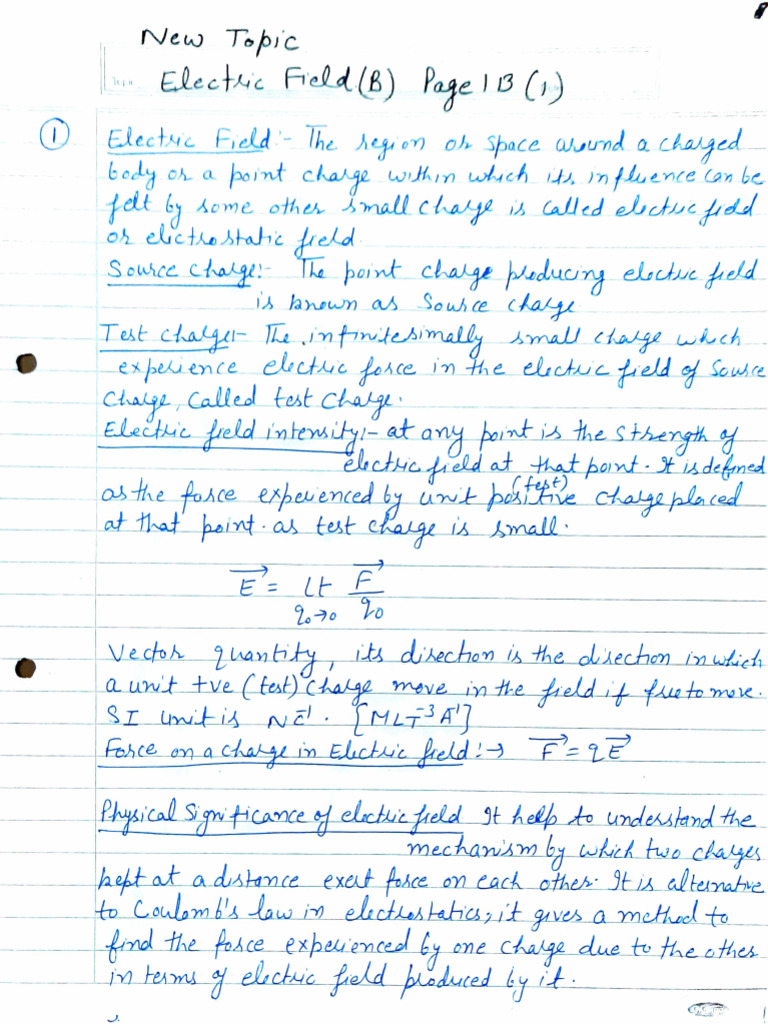 New Topic
Electric Field (B) Page 1B (1)
① Electric Field:- The region or space around a charged
body or a point charge within which its influence can be
felt by some other small charge is called electric field
or electrostatic field.
Source Charge:- The point charge producing electric field
is known as Source charge
Test charge:- The infinitesimally small charge which
experience electric force in the electric field of Source
Charge, Called test Charge.
Electric field intensity:- at any point is the strength of
electric field at that point. It is defined
as the force experienced by unit positive (test) charge placed
at that point. as test charge is small.
E⃗ = Lt F⃗
q₀→0 q₀
Vector quantity, its direction is the direction in which
a unit +ve (test) charge move in the field if free to move.
SI unit is NC⁻¹. [MLT⁻³A⁻¹]
Force on a charge in Electric field:→ F⃗ = qE⃗
Physical Significance of electric field It help to understand the
mechanism by which two charges
kept at a distance exert force on each other. It is alternative
to Coulomb's law in electrostatics, it gives a method to
find the force experienced by one charge due to the other
in terms of electric field produced by it.